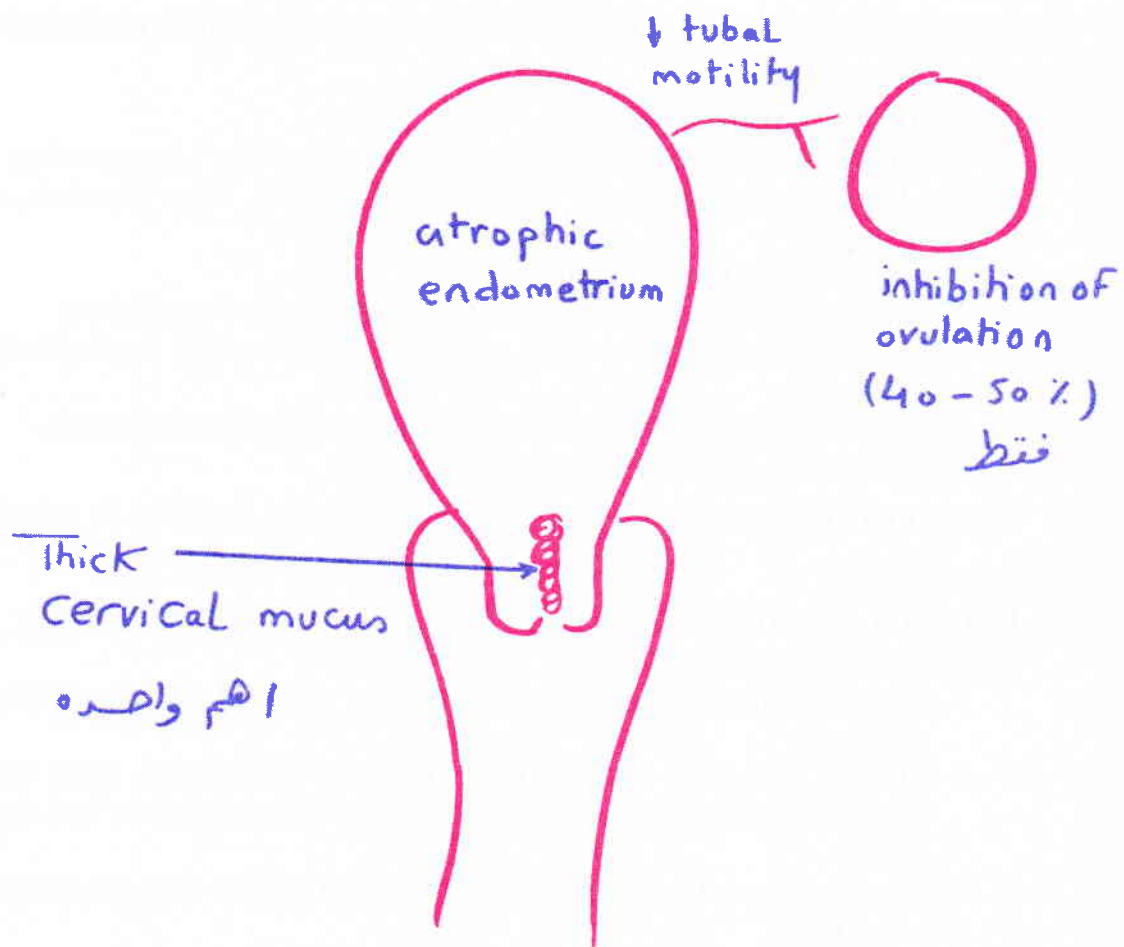 ↓ tubal
motility
atrophic
endometrium
inhibition of
ovulation
(40 - 50 %)
فقط
Thick
Cervical mucus
اهم واحده